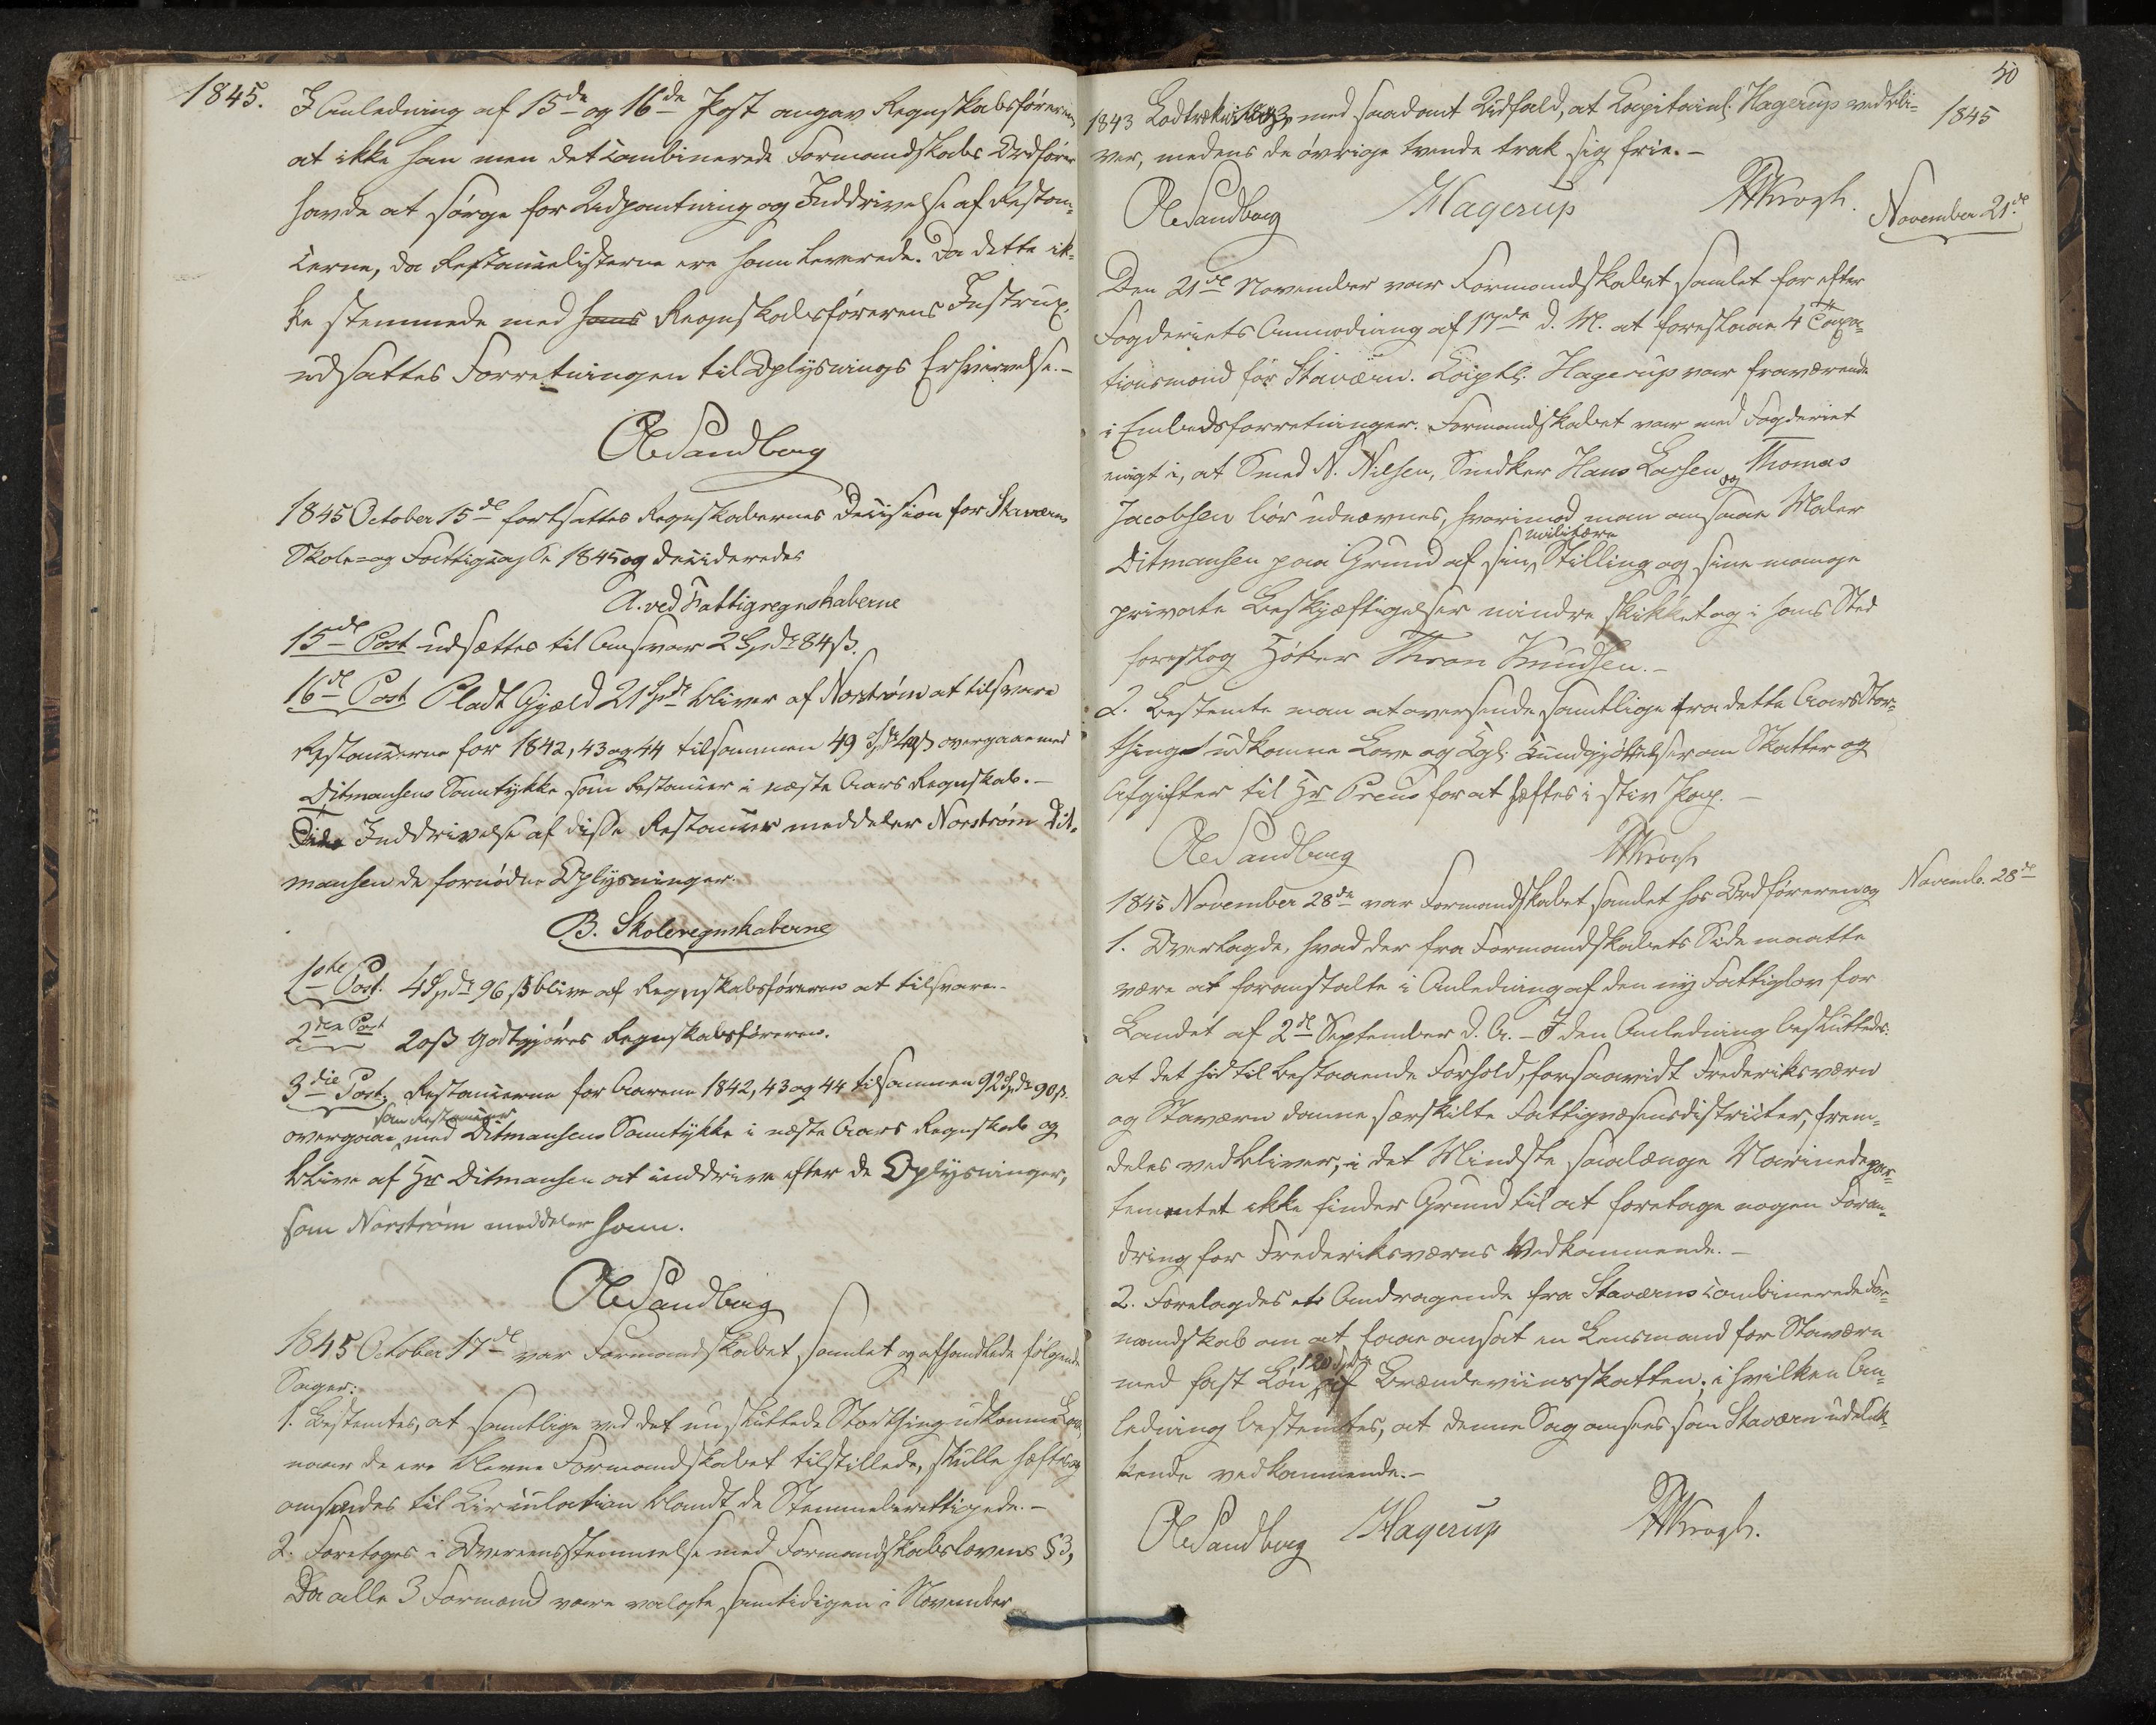 1845.
I Anledning af 15de og 16de Post angav Regnskabsføreren,
at ikke han men det combinerede Formandskabs Ordfører
havde at sørge for Udpantning og Inddrivelse af Restan-
cerne, da Restancelisterne ere ham leverede. Da dette ik-
ke stemmede med hans Regnskabsførerens Instrux,
udsattes Forretningen til Oplysnings Erhvervelse.-
Ole Sandberg
1845 October 15de fortsattes Regnskabernes Decision for Staværns
Skole- og Fattigcasse 1845 og decideredes
A. ved Fattigregnskaberne
15de Post udsættes til Ansvar 2 Spdr 84 ß.
16de Post Pladt Gjæld 21 Spdr bliver af Norstrøm at tilsvare
Restancerne for 1842, 43 og 44 tilsammen 49 Spdr 49 ß overgaae med
Ditmansens Samtykke som Restancer i næste Aars Regnskab.-
Inddrivelse af disse Restancer meddeler Norstrøm Dit-
mansen de fornødne Oplysninger.
B. Skoleregnskaberne
1ste Post. 4 Spdr 96 ß blive af Regnskabsføreren at tilsvare.
2den Post 20 ß Godtgjøres Regnskabsføreren.
3die Post. Restancerne for Aarene 1842, 43 og 44 tilsammen 92 Spdr 90 ß.
som Restancer
overgaae med Ditmansens Samtykke i næste Aars Regnskab og
blive af Hr Ditmansen at inddrive efter de Oplysninger,
som Norstrøm meddeler ham.
Ole Sandberg
1845 October 17de var Formandskabet samlet og afhandlede følgende
Sager:
1. Bestemtes, at samtlige ved det nu sluttede Storthing udkomne Love,
naar de ere blevne Formandskabet tilstillede, skulle hæftes og
omsendes til Circulation blandt de Stemmeberettigede.-
2. Foretoges i Overeensstemmelse med Formandskabslovens §3,
Da alle 3 Formænd vare valgte samtidigen i November
50
1845
1843 Lodtrækning med saadant Udfald, at Capitain Hagerup vedbli-
ver, medens de øvrige tvende trak sig frie.-
Ole Sandberg Hagerup Krogh.
November 21de
Den 21de November var Formandskabet samlet for efter
Fogderiets Anmodning af 17de d. M. at foreslaae 4 Taxa-
tionsmænd for Staværn. Capt. Hagerup var fraværende
i Embedsforretninger. Formandskabet var med Fogderiet
enigt i, at Smed N. Nilsen, Snedker Hans Larsen og Thomas
Jacobsen bør udnævnes, hvorimod man ansaae Maler
militære
Ditmansen paa Grund af sin Stilling og sine mange
private Beskjæftigelser mindre skikket og i hans Sted
foreslog Høker Thron Knudsen.-
2. Bestemte man at oversende samtlige fra dette Aars Stor-
thinget udkomne Love og Kgl. Kundgjørelser om Skatter og
Afgifter til Hr Preus for at hæftes i stiv Pap.-
Ole Sandberg Krogh
Novemb. 28de
1845 November 28de var Formandskabet samlet hos Ordføreren og
1. Overlagde, hvad der fra Formandskabets Side maatte
være at foranstalte i Anledning af den ny Fattiglov for
Landet af 2de September d. A. - I den Anledning besluttedes:
at det hidtil bestaaende Forhold, forsaavidt Frederiksværn
og Staværn danne særskilte Fattigvæsensdistricter, frem-
deles vedbliver, i det Mindste saalænge Marinedepar-
tementet ikke finder Grund til at foretage nogen Foran-
dring for Frederiksværns Vedkommende.-
2. Forelagdes et Andragende fra Staværns combinerede For-
mandskab om at faae ansat en Lensmand for Staværn
120 Spdr
med fast Løn af Brændeviinsskatten; i hvilken An-
ledning bestemtes, at denne Sag ansees som Staværn udeluk-
kende vedkommende.-
Ole Sandberg Hagerup Krogh.